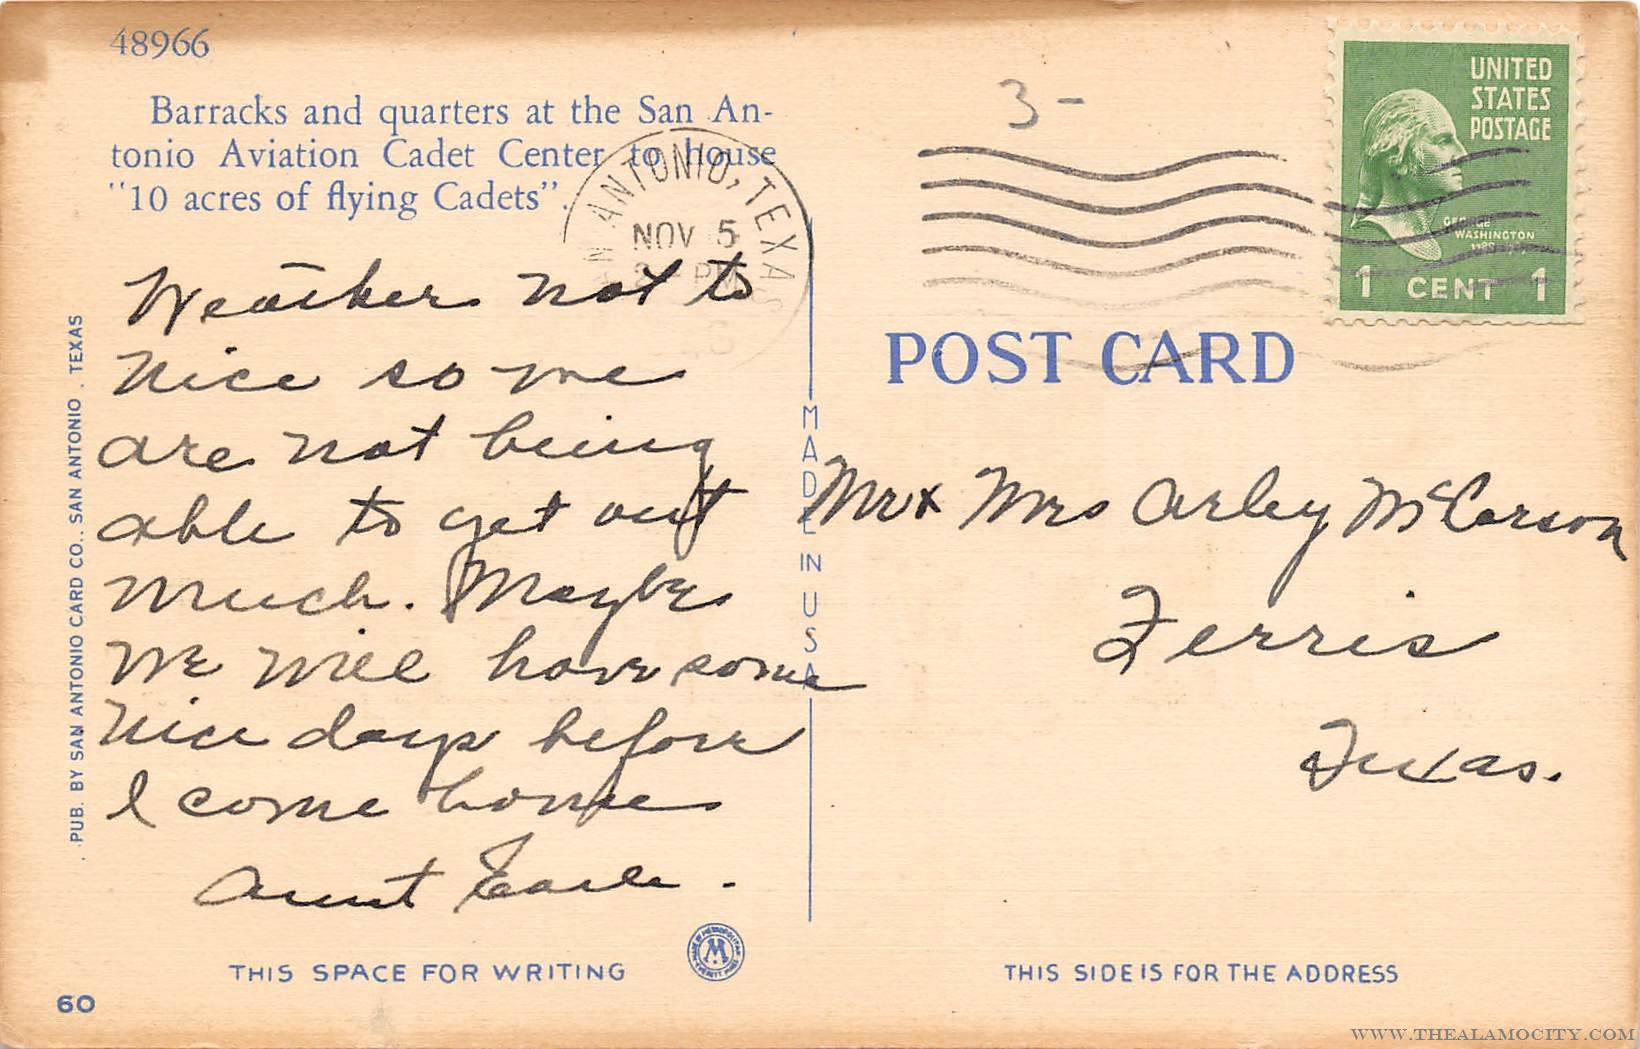 48966
Barracks and quarters at the San An-
tonio Aviation Cadet Center to house
"10 acres of flying Cadets".
ANTONIO, TEXAS
NOV 5
PM
Weather not to
nice so we
are not being
able to get out
much. Maybe
we will have some
nice days before
I come home
Aunt Earle.
THIS SPACE FOR WRITING
60
PUB. BY SAN ANTONIO CARD CO., SAN ANTONIO, TEXAS
MADE IN USA
3-
UNITED
STATES
POSTAGE
GEORGE
WASHINGTON
1 CENT 1
POST CARD
Mr & Mrs Arley McCarson
Ferris
Texas.
THIS SIDE IS FOR THE ADDRESS
WWW.THEALAMOCITY.COM